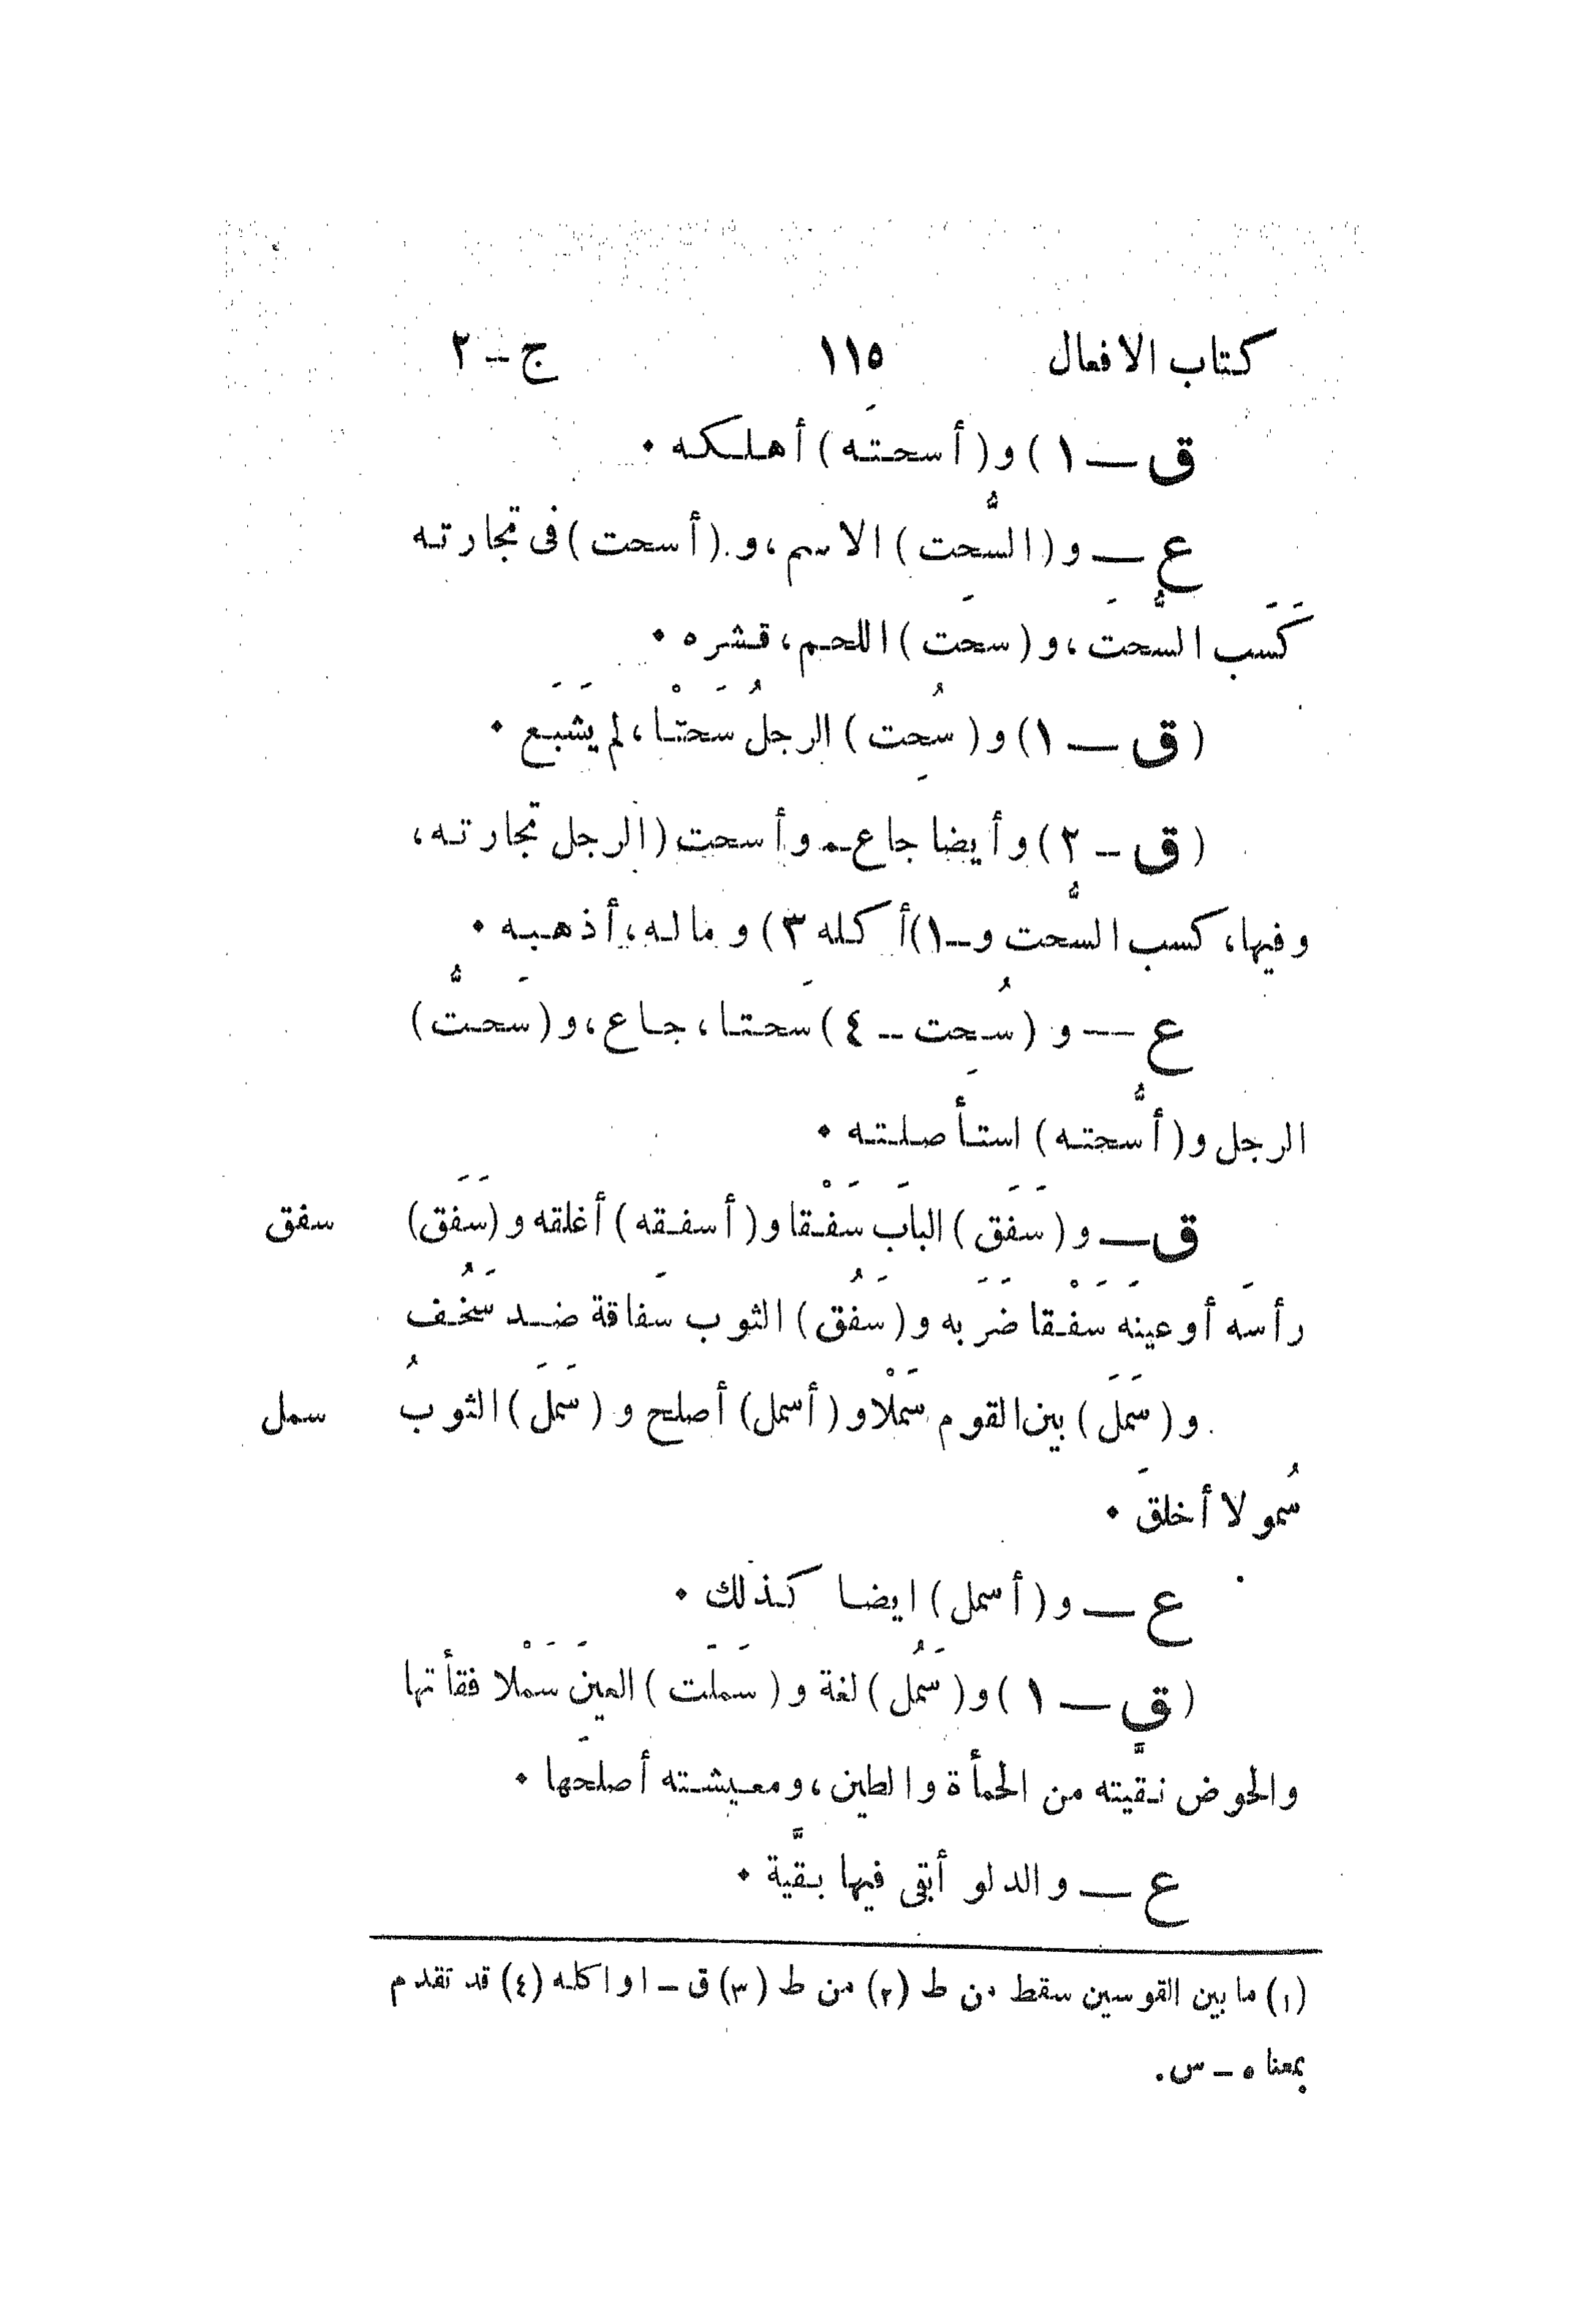 كتاب الافعال ١١٥ ج – ٢
ق — ١) و (أسحتَه) أهلكه ٠
ع — و (السُّحت) الاسم، و (أسحت) فى تجارته
كَسَب السُّحتَ، و (سحَت) اللحم، قشره ٠
(ق — ١) و (سُحِت) الرجلُ سَحتْا، لم يَشَبَع ٠
(ق – ٢) وأيضا جاع – وأسحت (الرجل تجارته،
وفيها، كسب السُّحت و – ١) أكله ٣) وماله، أذهبه ٠
ع — و (سُحِت – ٤) سَحتا، جاع، و (سَحتُّ)
الرجل و (أسُّحته) استأصلته ٠
ق — و (سَفَق) البابَ سَفْقا و (أسفقه) أغلقه و (سَفَق) سفق
رأسَه أو عينَه سَفْقا ضَرَبه و (سَفُق) الثوب سَفاقة ضد سَخُف
و (سَمَلَ) بين القوم سَمْلا و (أسمل) أصلح و (سَمَلَ) الثوبُ سمل
سُمولا أخلقَ ٠
ع — و (أسمل) ايضا كذلك ٠
(ق — ١) و (سَمُل) لغة و (سَملَت) العينَ سَمْلا فقأتها
والحوض نقَّيته من الحمأة والطين، ومعيشته أصلحَها ٠
ع — والدلو أبقى فيها بقَّية ٠
(١) ما بين القوسين سقط من ط (٢) من ط (٣) ق – او اكله (٤) قد تقدم
بمعناه – س.